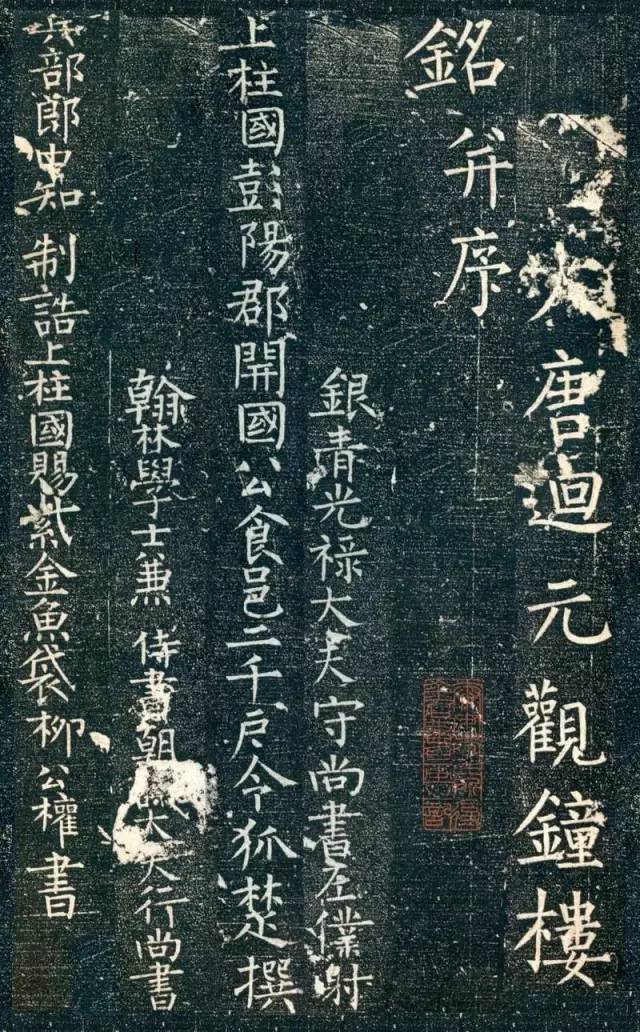 大唐迴元觀鐘樓
銘并序
銀青光祿大夫守尚書左僕射
上柱國彭陽郡開國公食邑二千戶令狐楚撰
翰林學士兼侍書朝大夫行尚書
兵部郎中知制誥上柱國賜紫金魚袋柳公權書